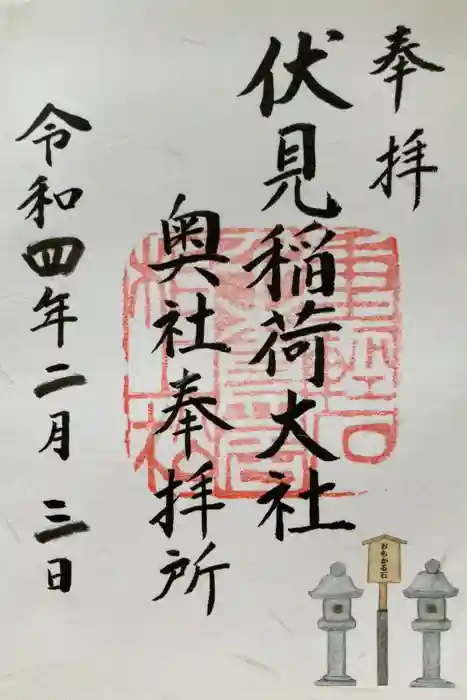 奉拝
伏見稲荷大社
奥社奉拝所
令和四年二月三日
おもかる石